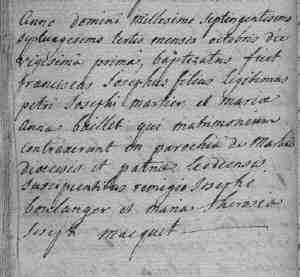 Anno domini millesimo septengentesimo
septuagesimo tertio mensis octobris die
vigesima prima, baptizatus fuit
franciscus Josephus filius legitimus
petri Josephi martier et mariæ
Annæ baillet qui matrimonium
contraxerunt in parochia de
diocesis et patria leodiensis.
Suscipientibus remigio Josepho
boulanger et maria theresia
Joseph macquet